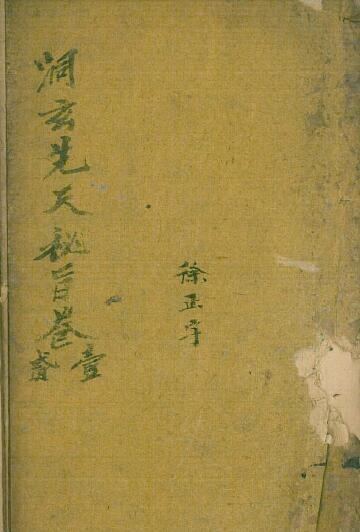 徐正
洞玄先天秘旨卷壹